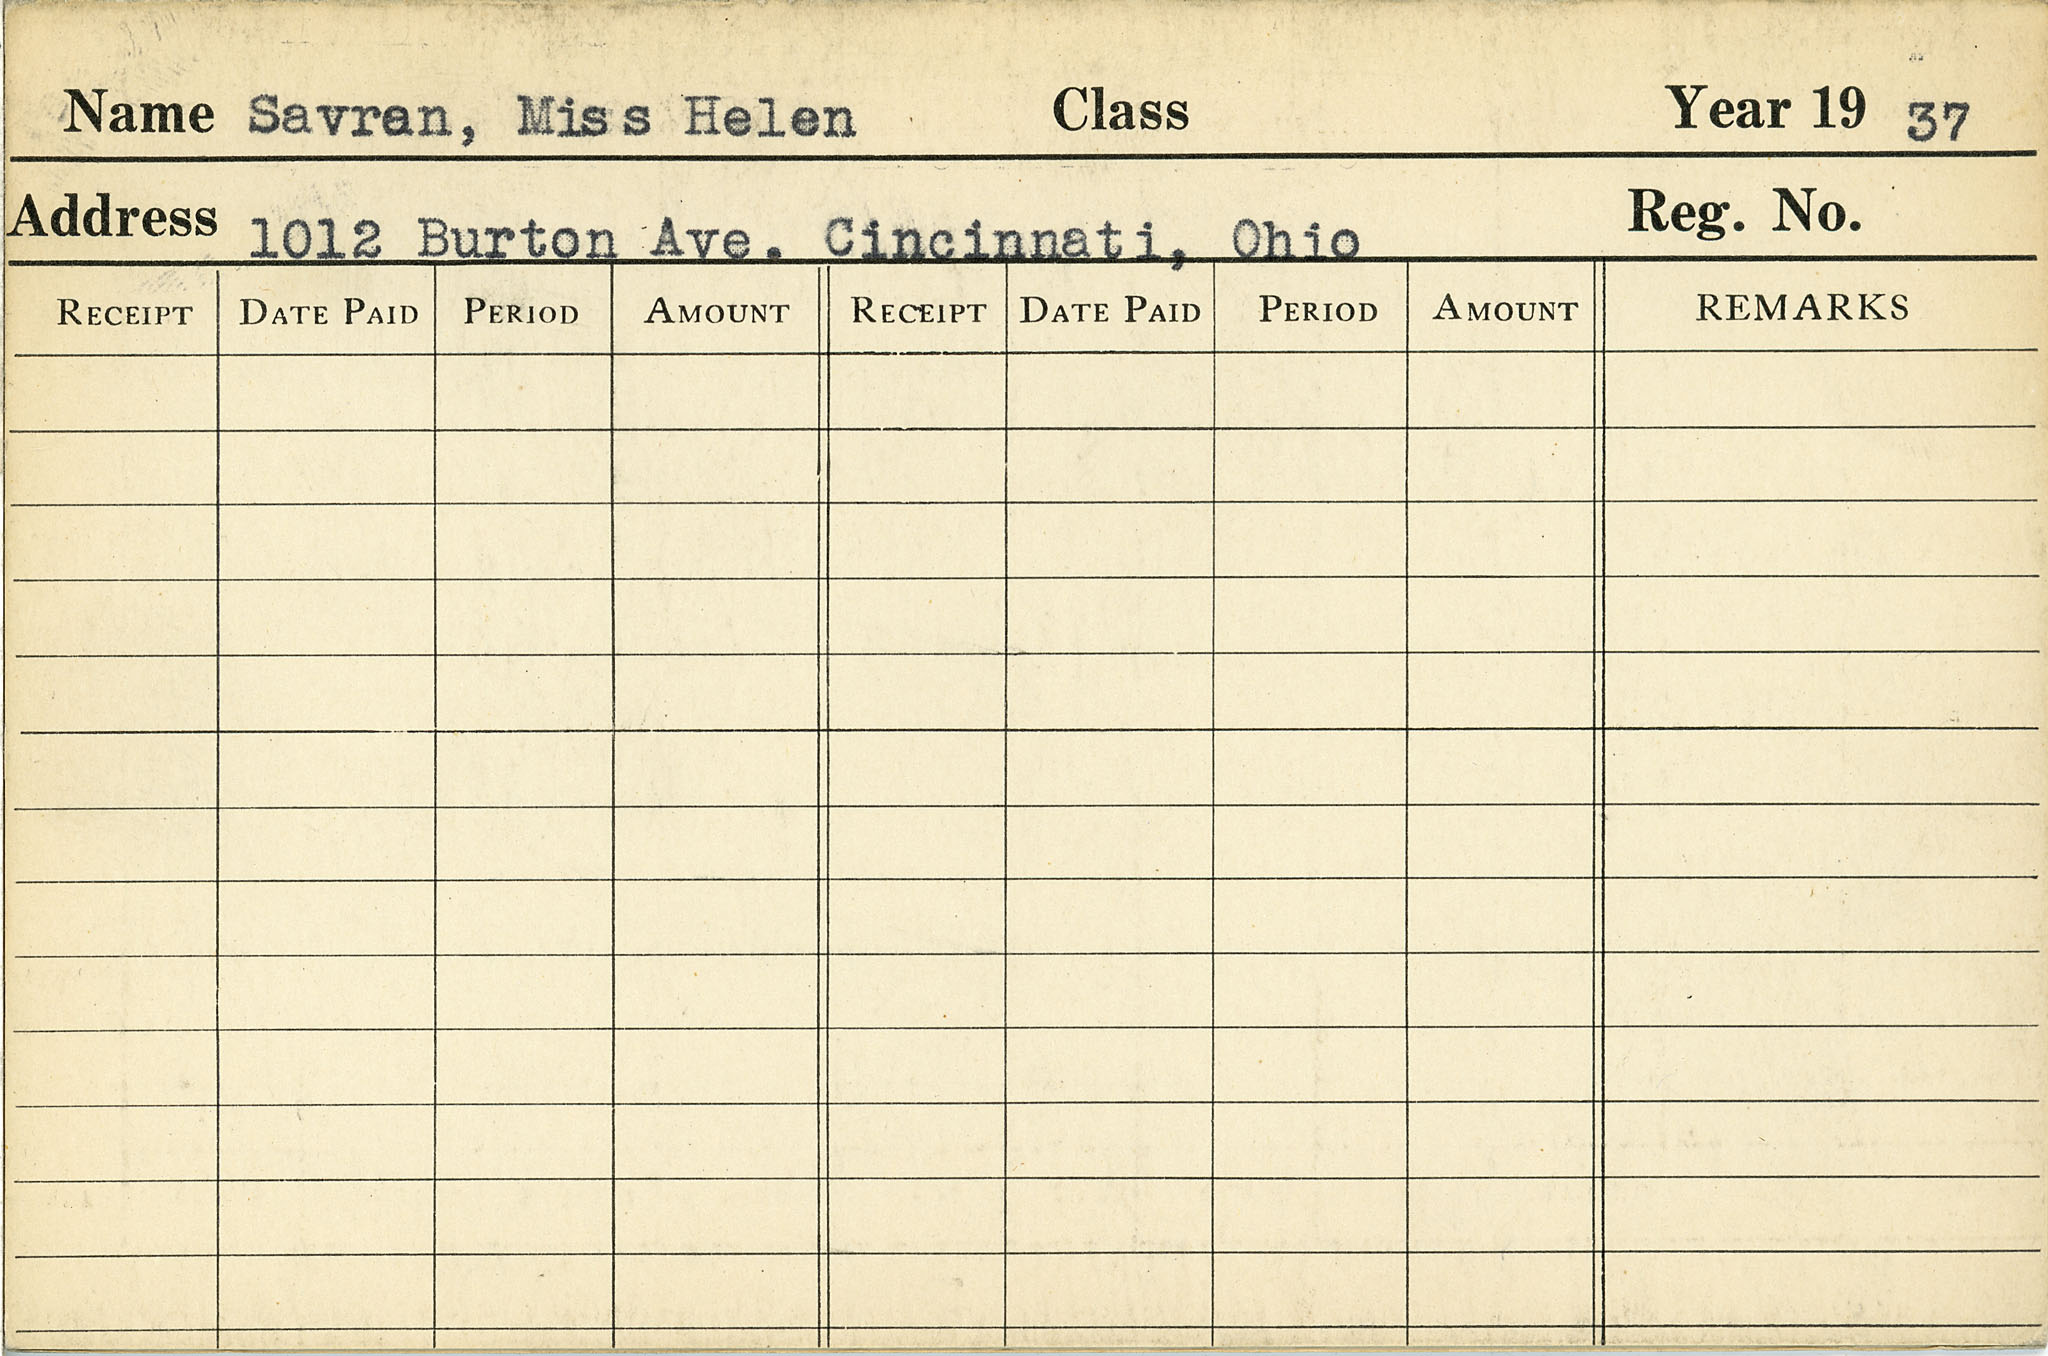 Name Savran, Miss Helen Class Year 19 37
Address 1012 Burton Ave. Cincinnati, Ohio Reg. No.
RECEIPT DATE PAID PERIOD AMOUNT RECEIPT DATE PAID PERIOD AMOUNT REMARKS